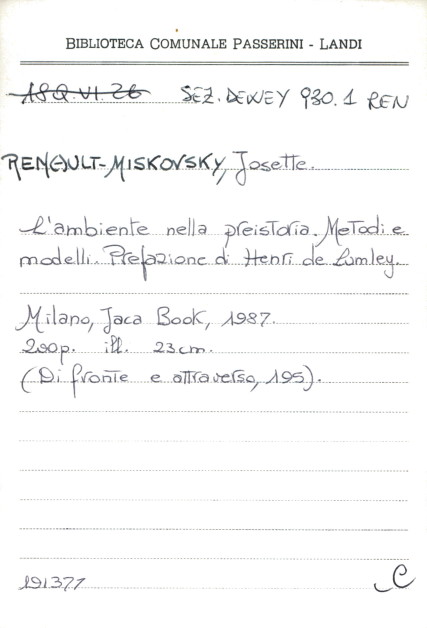 BIBLIOTECA COMUNALE PASSERINI - LANDI
18Q.VI.26 SEZ. DEWEY 930.1 REN
RENAULT-MISKOVSKY, Josette.
L'ambiente nella preistoria. Metodi e
modelli. Prefazione di Henri de Lumley.
Milano, Jaca Book, 1987.
200p. ill. 23cm.
(Di fronte e attraverso, 195).
191371
C